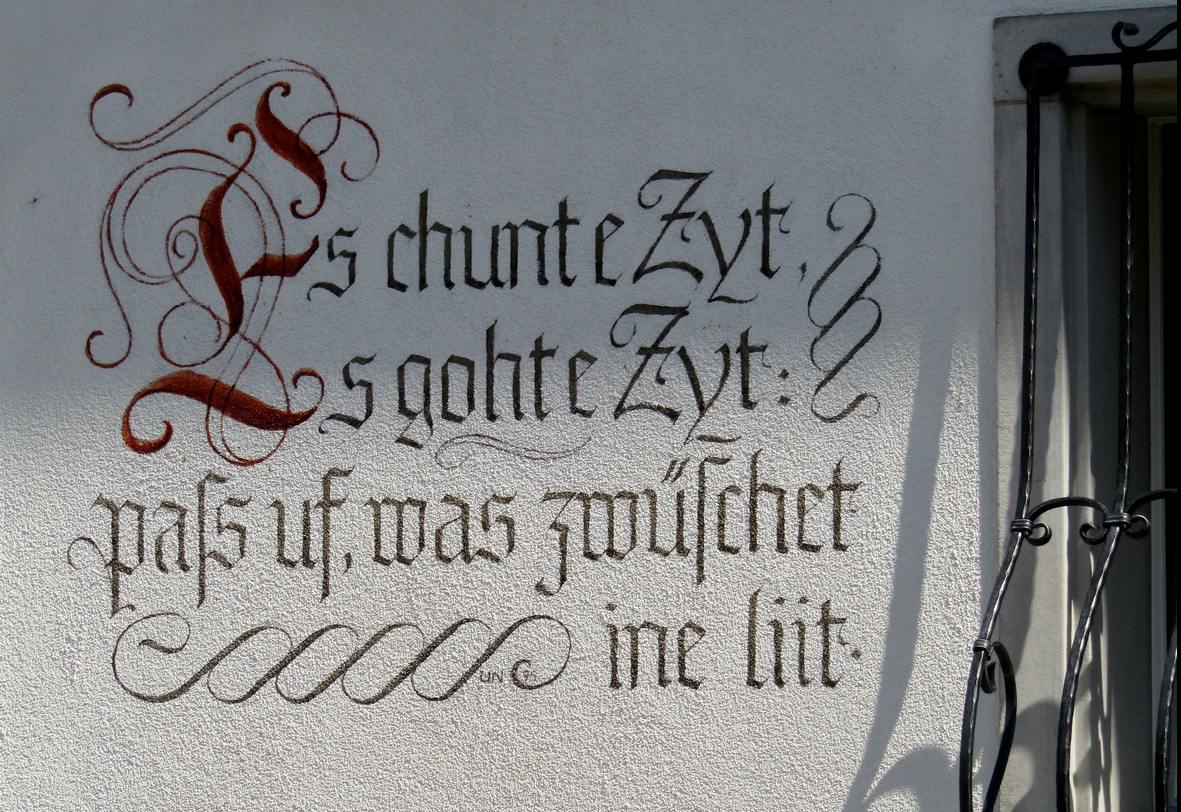 Es chunt e Zyt,
Es goht e Zyt:
pass uf, was zwüschet
ine liit.
UN